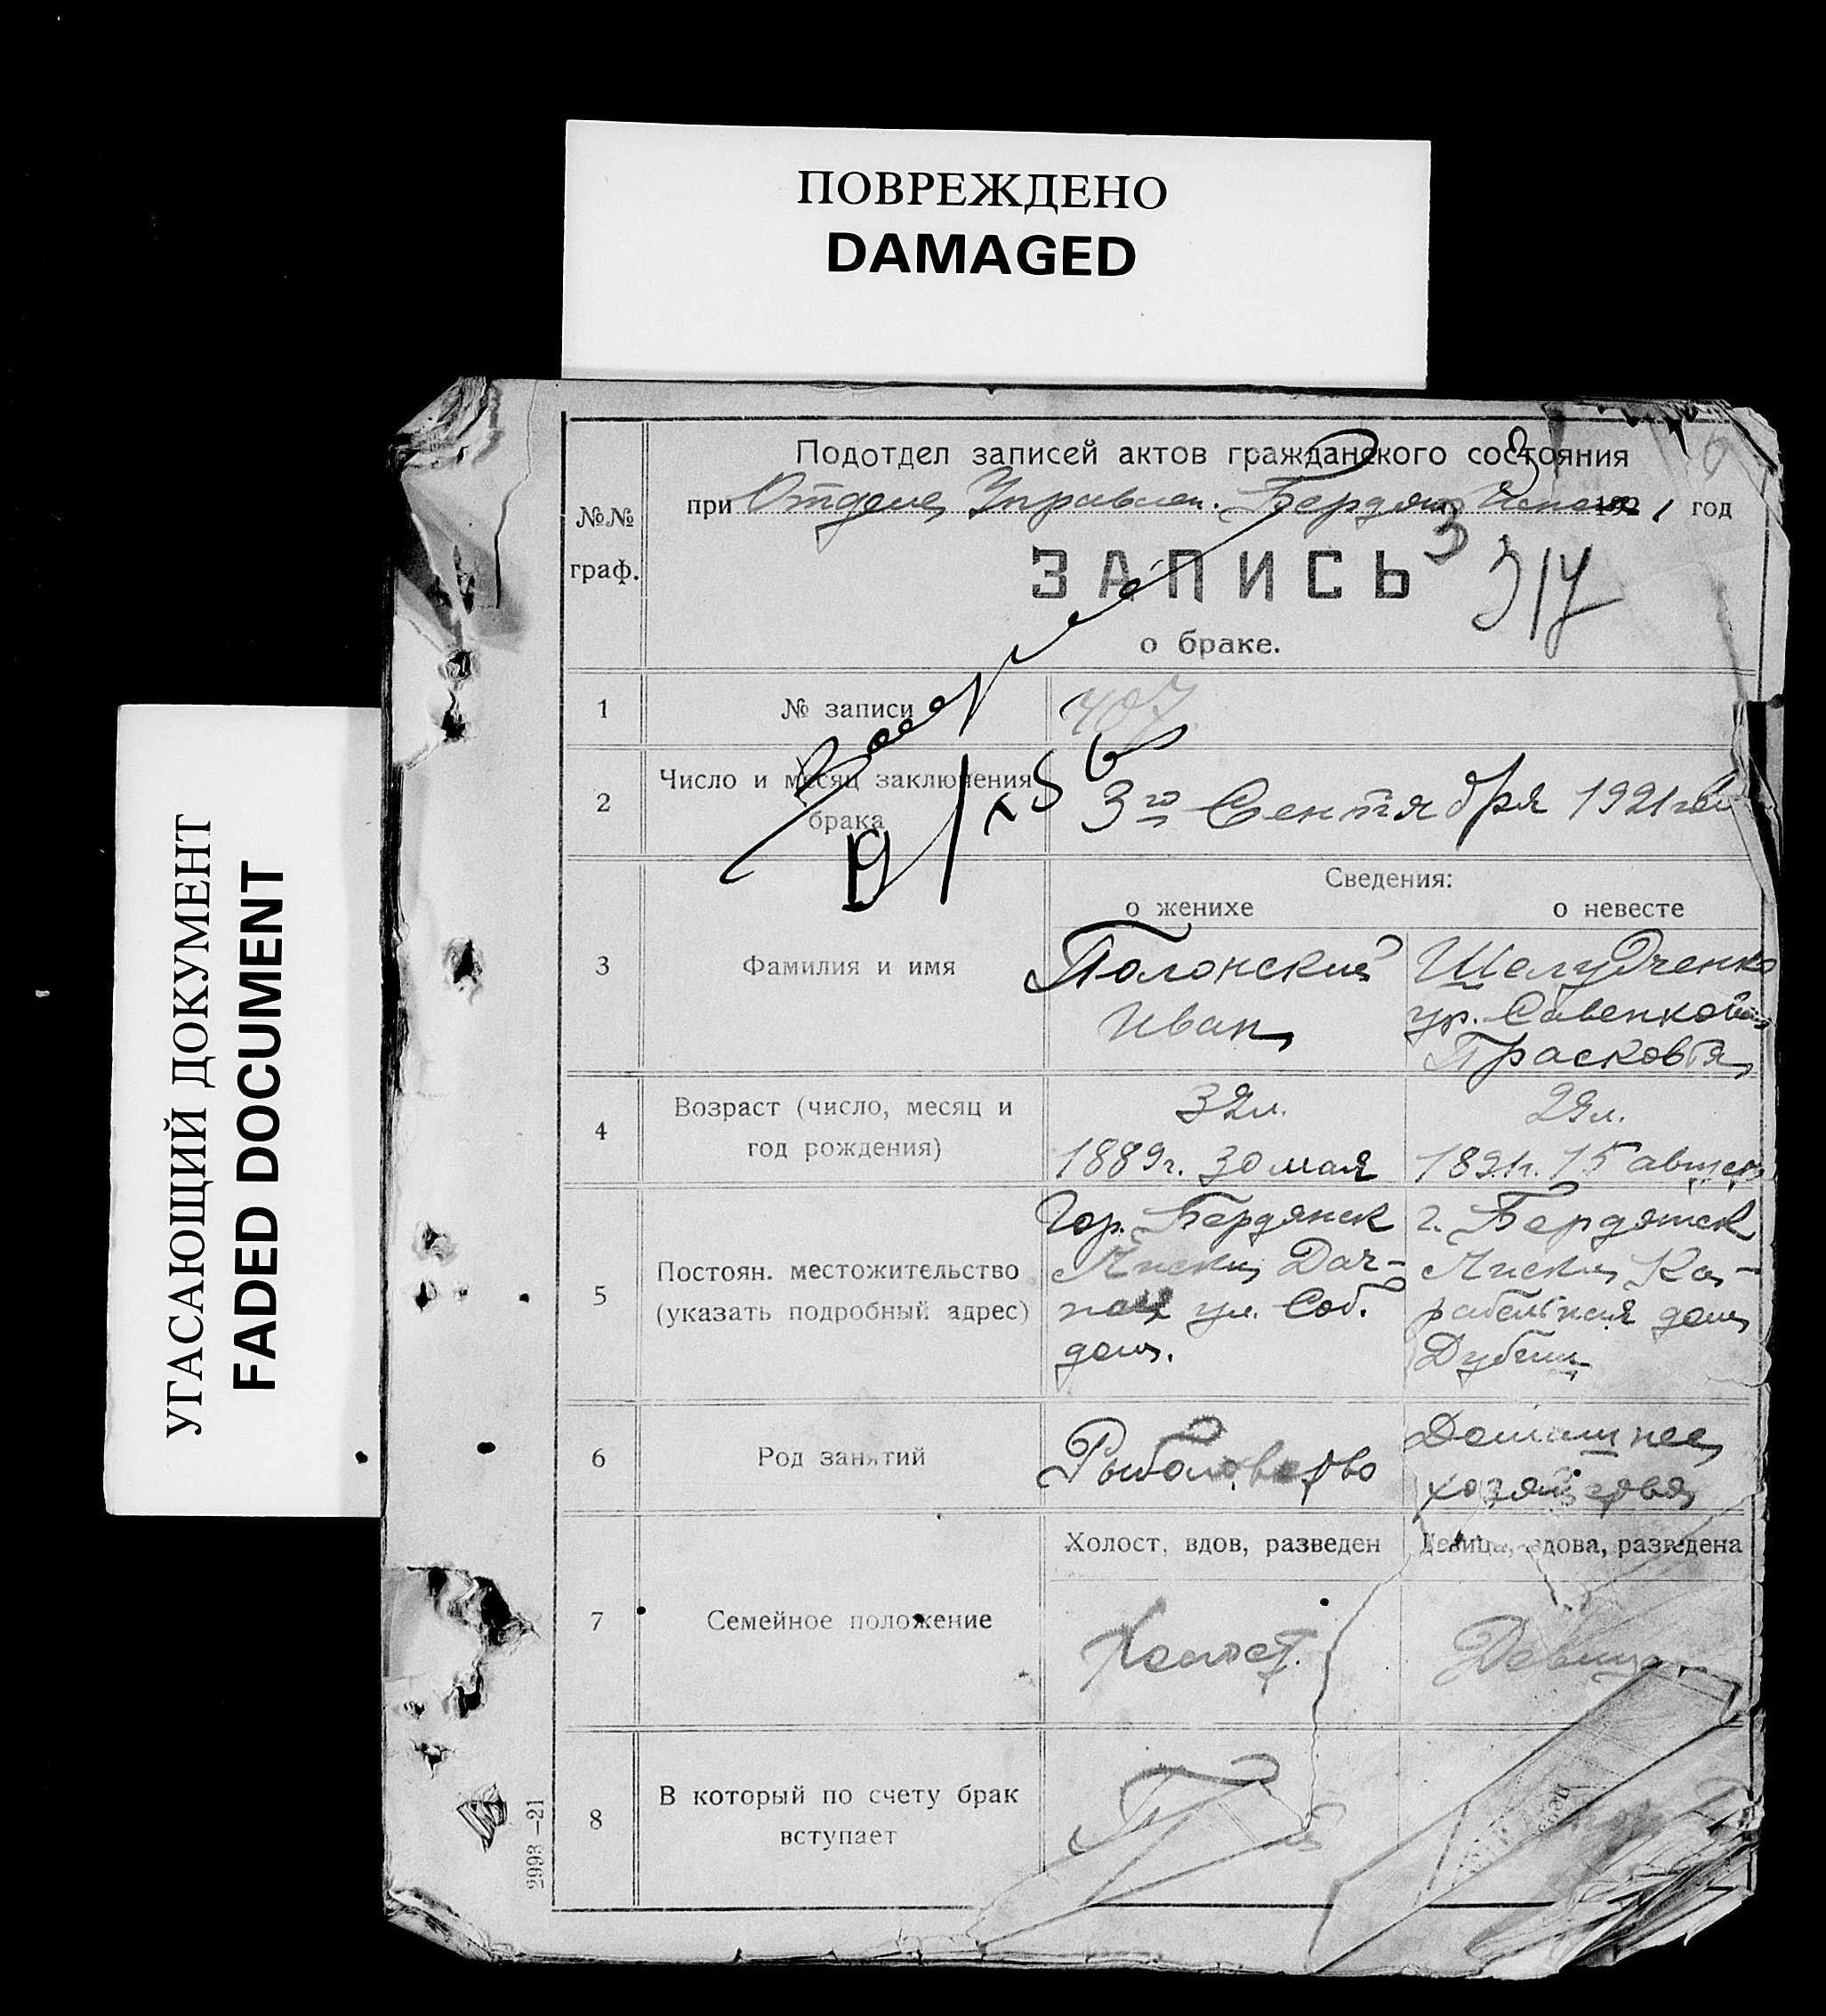 ПОВРЕЖДЕНО
DAMAGED
УГАСАЮЩИЙ ДОКУМЕНТ
FADED DOCUMENT
Подотдел записей актов гражданского состояния
№№
граф.
при Отделе Управлен. Бердян. 1921 год
ЗАПИСЬ
317
о браке.
1 № записи 407
2 Число и месяц заключения
брака
3го Сентября 1921
Сведения:
о женихе о невесте
3 Фамилия и имя
Полонский
Иван
Шелудченко
ур. Савенкова
Прасковья
4 Возраст (число, месяц и
год рождения)
32л.
1889г. 30 мая
29л.
189 г. 15 август
5 Постоян. местожительство
(указать подробный адрес)
Гор. Бердянск
Лиски Дач-
ная ул. Соб.
дом.
г. Бердянск
Лиски Ка-
рабельная дом
6 Род занятий
Рыболовство
Домашнее
хозяйство
7 Семейное положение
Холост, вдов, разведен
Девица, вдова, разведена
Холост.
Девица
8 В который по счету брак
вступает
2993—21